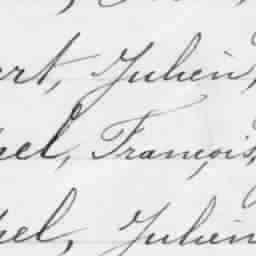 ert, Julien,
el, François,
el, Julien